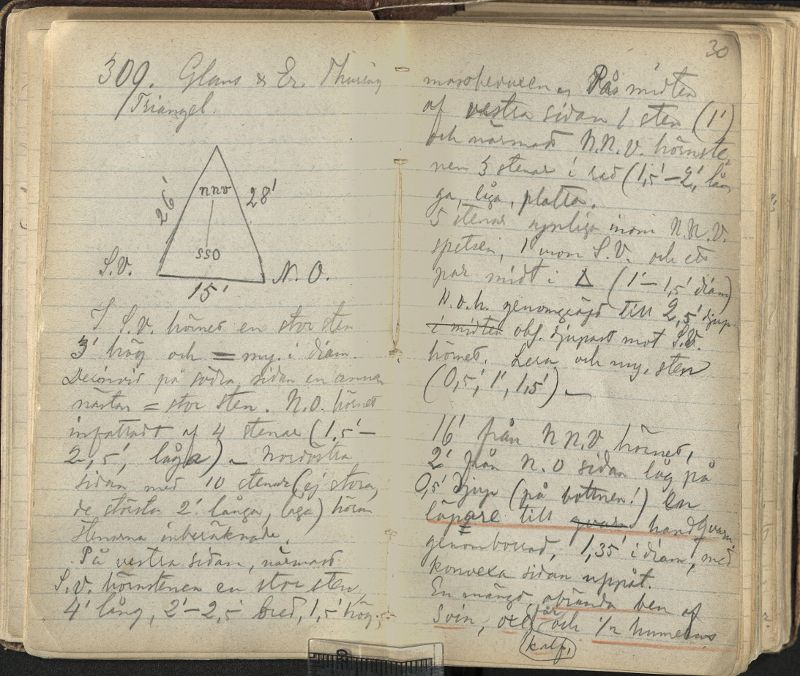 309. Glans & Er.
Triangel.
26'
nnv
28'
SSO
S.V.
N.O.
15'
I S.V. hörnet en stor sten
3' hög och = my. i diam.
på södra sidan en annan
nästan = stor sten. N.O. hörnet
infattadt af 4 stenar (1,5'–
2,5', låga) – Nordöstra
sidan med 10 stenar (ej stora,
de största 2' långa, låga) hörn
stenarna inberäknade.
På vestra sidan, närmast
S.V. hörnstenen en stor sten,
4' lång, 2'–2,5 bred, 1,5' hög,
30
På midten
af vestra sidan 1 sten (1')
och närmast N.N.V. hörnste
nen 3 stenar i rad (1,5'–2' lån
ga, låga, platta.
5 stenar synliga inom N.N.V.
spetsen, 1 inom S.V. och ett
par midt i Δ (1'–1,5' diam)
genomgrägd till 2,5' djup
i midten obs. djupast mot S.V.
hörnet. Lera och my. sten
(0,5', 1', 1,5') –
16' från NNV hörnet,
2' från N.O sidan låg på
0,5' djup (på bottnen!) en
löpare till handqvarn
genomborrad, 1,35' i diam, med
konvexa sidan uppåt.
En mängd obrända ben af
svin, får och 1/2 humerus
kalf,